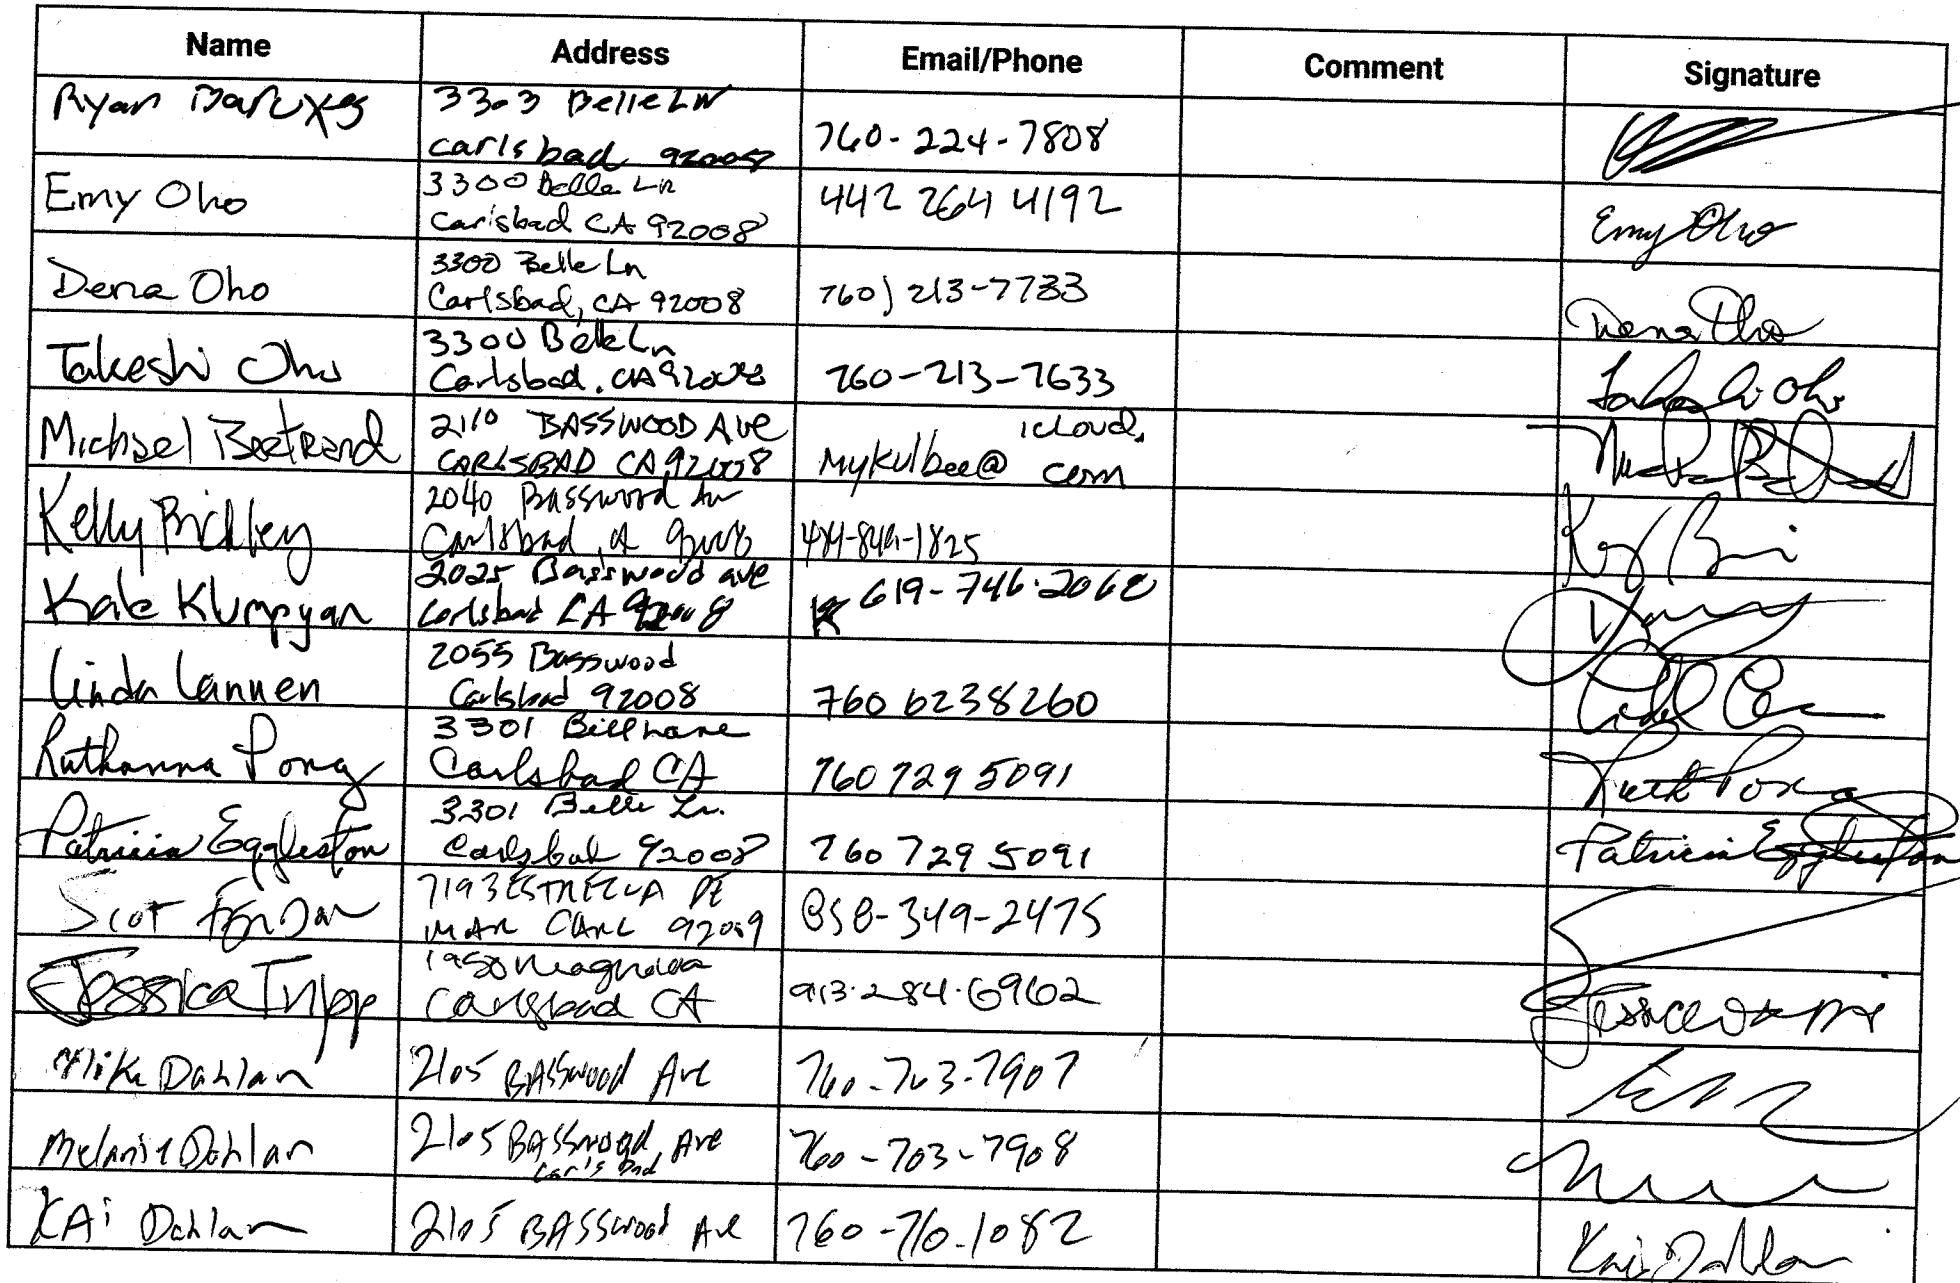 Name Address Email/Phone Comment Signature
Ryan 3303 Belle LN
carlsbad 92008 760-224-7808
Emy Oho 3300 Belle Ln
Carlsbad CA 92008 442 264 4192 Emy Oho
Dena Oho 3300 Belle Ln
Carlsbad, CA 92008 760) 213-7733 Dena Oho
Takeshi Oho 3300 Belle Ln
Carlsbad, CA 92008 760-213-7633 Takeshi Oho
Michael Bertrand 2110 BASSWOOD AVE
CARLSBAD CA 92008 mykulbee@ icloud.
com
Kelly 2040 Basswood Av
Carlsbad, CA 92008
Kate Klumpyan 2025 Basswood ave
Carlsbad CA 92008 619-746-2068
Linda Cannen 2055 Basswood
Carlsbad 92008 760 6238260
Ruthanna Pong 3301 Bell Lane
Carlsbad CA 760 729 5091 Ruth Pong
Patricia Eggleston 3301 Belle Ln.
Carlsbad 92008 760 729 5091 Patricia Eggleston
Scot 7193 ESTRELLA DE
MAR CARL 92009 858-349-2475
Jessica Tripp 1950 Magnolia
Carlsbad CA 913-284-6962
Mike Dahlan 2105 BASSwood Ave 760-703-7907
Melanie Dahlan 2105 BASSwood Ave
Carlsbad 760-703-7908
KAi Dahlan 2105 BASSwood Ave 760-710-1082 Kai Dahlan